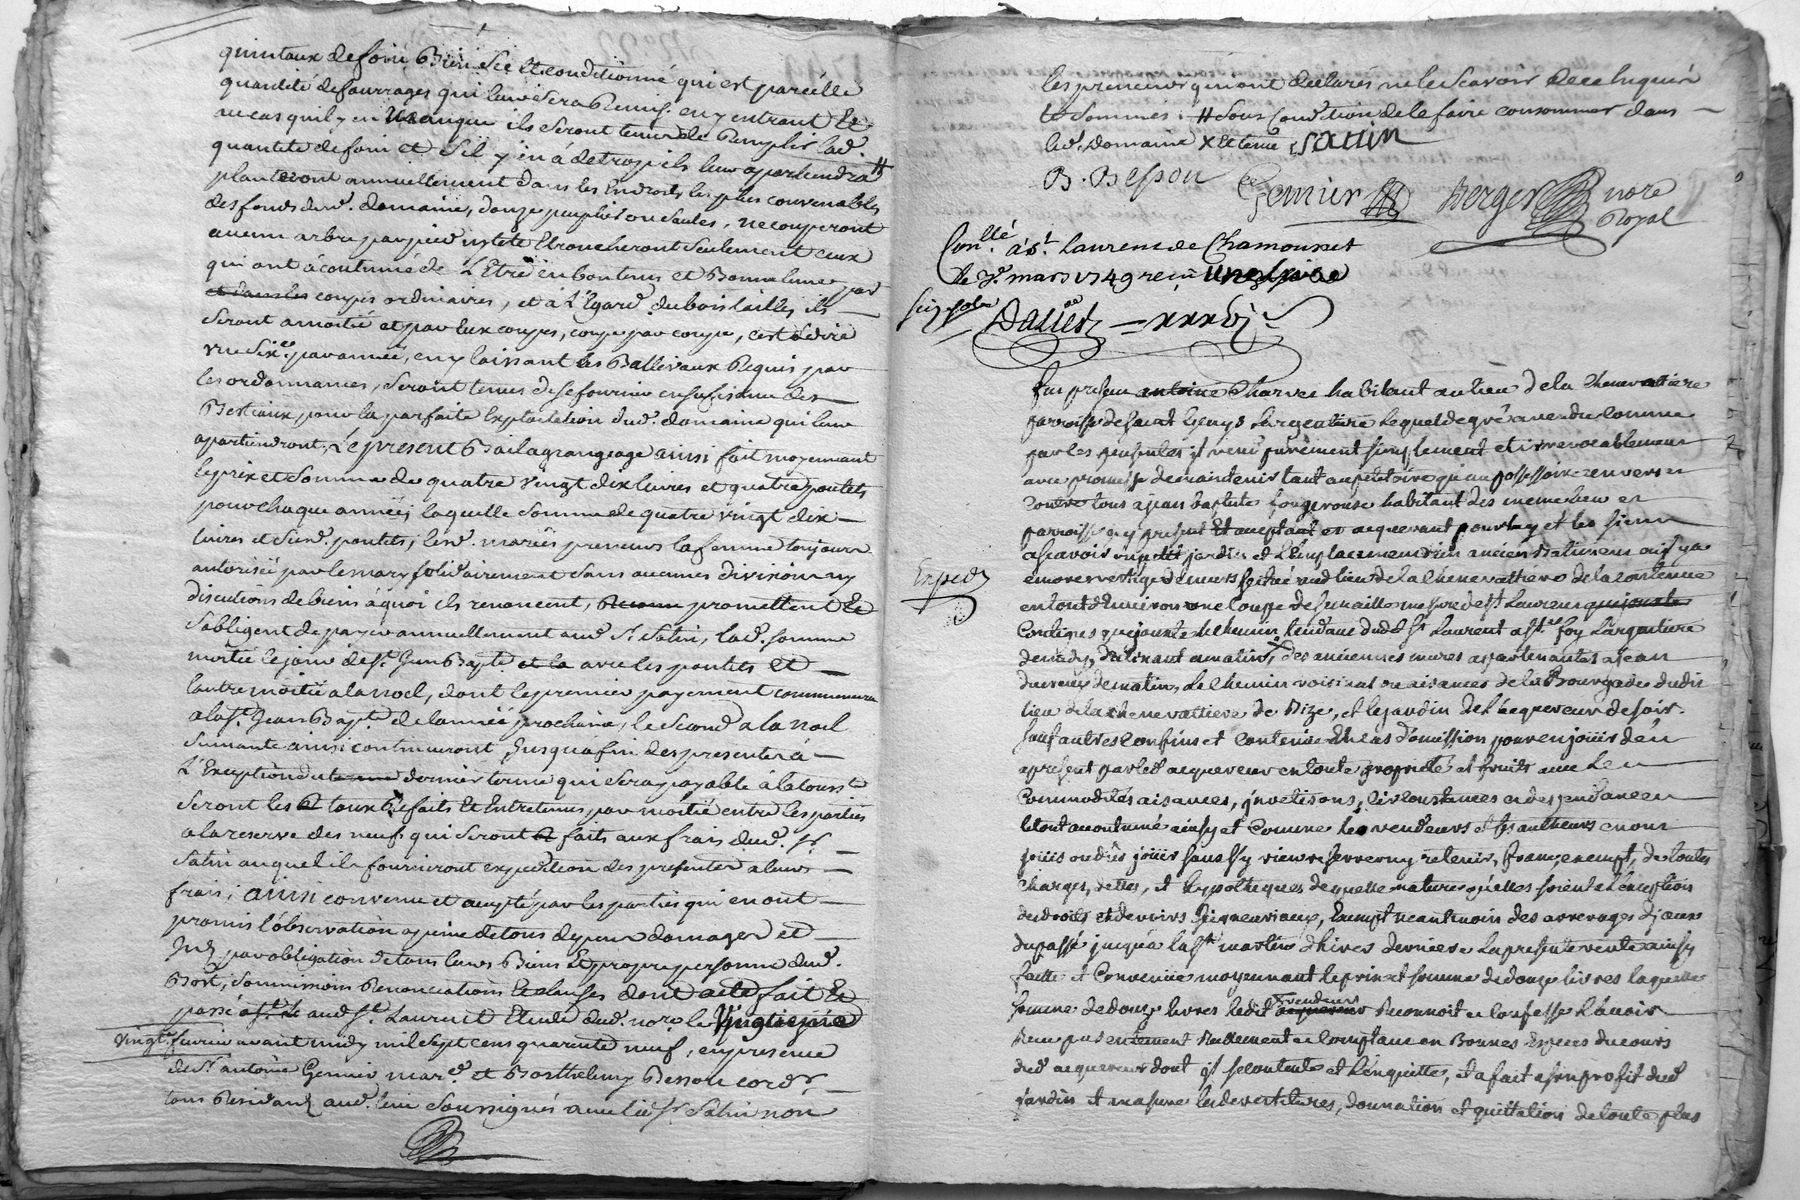 quintaux de foin Bien sec et conditionné qui est pareille
quantité de fourrages qui leur sera Remis en y entrant Et
au cas quil y en Manque ils seront tenus de Remplir lad.
quantité de foin et s'il y en à de trop il leur apartiendra #
planteront annuellement dans les Endroits les plus convenables
des fonds dud. domaine, douze peupliers ou saules, ne couperont
aucun arbre par pied ny tete Ebrancheront seulement ceux
qui ont àcoutumé de L'Etre en bon temps et Bonne lune par
et dans les coupes ordinaires, et à l'Egard du bois taillis ils
seront amoitié et par eux coupés, coupe par coupe, c'est à dire
un six.e par année, en y laissant les Ballivaux Requis par
les ordonnances, seront tenus de se fournir en suffisance des
Bestiaux pour la parfaite Exploitation dud. domaine qui leur
apartiendront, Le present Bail a grangeage ainsi fait moyennant
le prix et somme de quatre vingt dix livres et quatre poulets
pour chaque année, laquelle somme de quatre vingt dix
livres et susd. poulets, lesd. mariés preneurs la femme toujours
autorisée par le mary solidairement sans aucunes division ny
discutions de biens à quoi ils renoncent, promettent Et
s'obligent de payer annuellement aud. Sr. Satin, lad. somme
moitié le jour de St. Jean Bapte et la avec les poulets et
lautre moitié a la noel, dont le premier payement commencera
a la St. Jean Bapte de lannée prochaine, le second a la noel
suivante ainsi continueront jusqu'a fin des presentes à
L'Exception du terme dernier terme qui sera payable à la touss.t
seront les toux Refaits Et Entretenus par moitié entre les parties
a la reserve des neufs qui seront faits aux frais dud. Sr.
Satin auquel ils fourniront expedition des presentes a leurs
frais; ainsi convenu et accepté par les parties qui en ont
promis l'observation a peine de tous depens domages et
par obligation de tous leurs Biens Et propre personne dud.
soumissions Renonciations Et clauses dont acte fait Et
passé aud. St. Laurent Etude dud. nore. le Vingtieme
vingt.e fevrier avant midy mil sept cens quarante neuf, en presence
de Sr. antoine Gernier mar.d et Barthelemy Besson cord.r
tous Residants aud. lieu soussignés avec led. Sr. Satin non
les preneurs qui ont declarés ne le scavoir de ce Enquis
Et Sommés. # sous Condition de le faire consommer dans
led. Domaine X Et tenue Satin
B. Besson Gernier Berger nore
Royal
Con.llé à St. Laurens de Chamousset
le 3.e mars 1749 reçu une livre
six sols
Dalier xxxvj s
Fut present antoine Charvet habitant au lieu de la Chenevattiere
parroisse de saint Genys Largentiere lequel de gré a vendu comme
par les presentes il vend purement simplement et irrevocablement
avec promesse de maintenir tant au petitoire qu'au possessoire envers et
Contre tous a jean baptiste fougerouse habitant des meme lieu et
parroisse icy present Et acceptant et acquerant pour luy et les siens
ascavoir un petit jardin et l'Emplacement d'un ancien Batiment ou il y a
encore vertige de murs scitué aud lieu de la Chenevattiere de la contenue
Exped.
en tout d'Environ une Coupe de semaille mesure de St. Laurens qui jouste
Confines que jouxte le chemin tendant dudt St Laurent a Ste foy Largentiere
de midy, X des anciennes mures appartenantes a jean
de matin, Le chemin voisinal ou aisances de la Bourgade dudit
lieu de la chenevattiere de Bize, et le jardin de l'acquereur de soir.
sauf autres Confins et Contenue En cas d'omission pour en jouir des
apresent par led acquereur en toute propriété et fruits avec les
Commodités aisances, circonstances et dependances
le tout acoutumé ainsy et Comme le vendeurs et ses autheurs en ont
jouis ou dû jouir sans s'y rien reserver ny retenir, franc, exempt, de toutes
charges, dettes, et hypotheques de quelle nature qu'elles soient a L'exception
des droits et devoirs seigneuriaux, Exempt neantmoins des arrerages d'jceux
du passé jusqu'a la St. martin d'hiver derniere La presente vente ainsy
faitte et Convenüe moyennant le prix et somme de douze livres laquelle
somme de douze livres ledit acquereur vendeurs Reconnoit et Confesse l'avoir
Receu presentement Reellement et Comptant en Bonnes Especes du cours
dud acquereur dont il se contente et l'enquitte, et a fait a son profit dud
jardin et masure les devestitures, donnation et quittation de toute plus